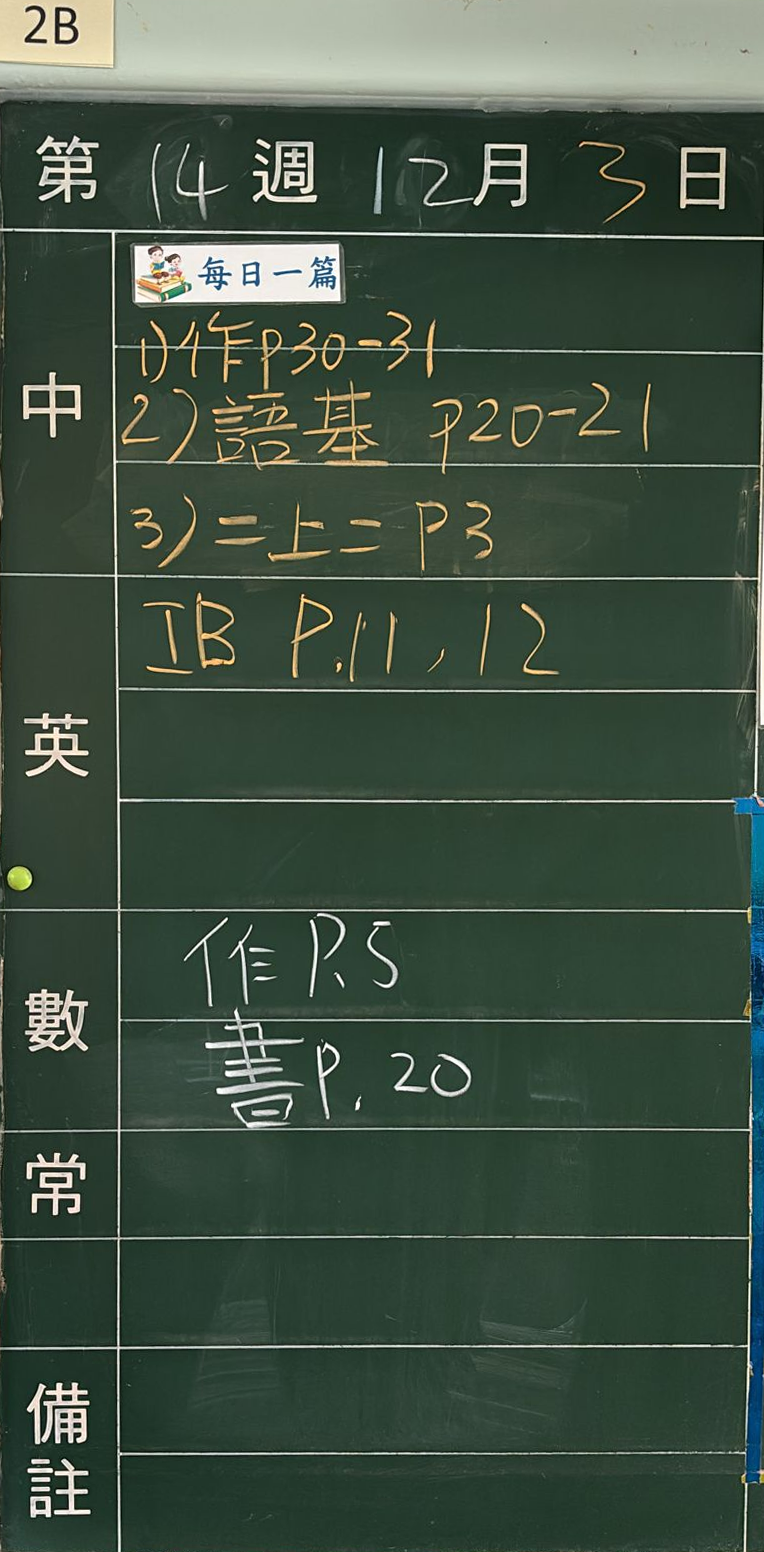 2B
第 14 週 12 月 3 日
中
每日一篇
1)作p30-31
2)語基 p20-21
3)二上二 P3
英
IB P.11, 12
數
作 P.5
書 P. 20
常
備註